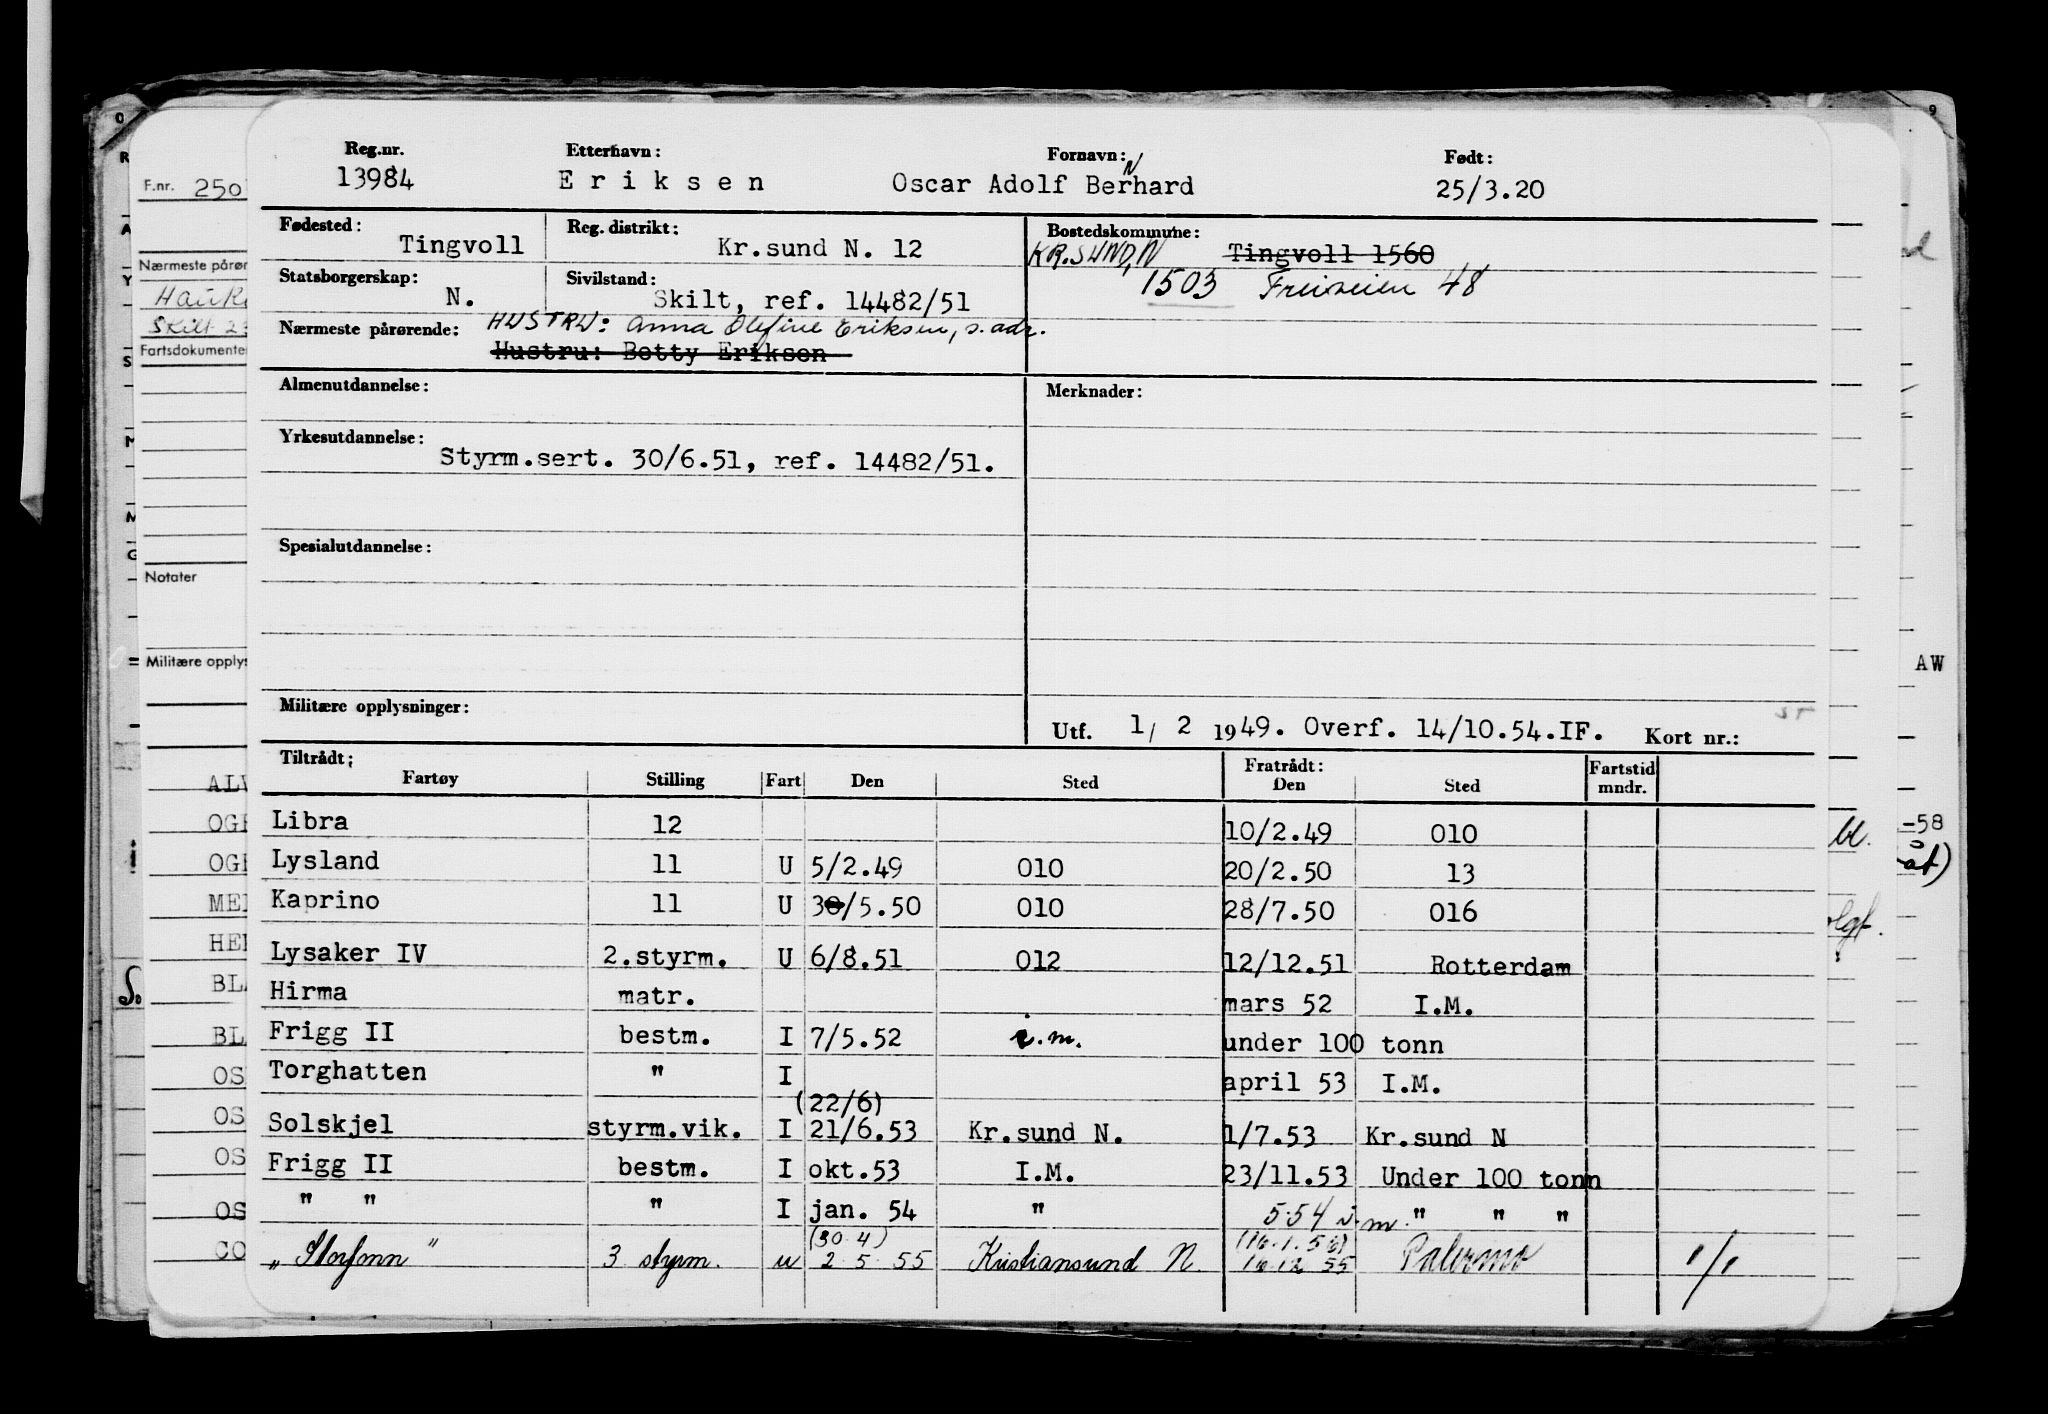 Reg.nr. Etternavn: Fornavn: Født:
13984 Eriksen Oscar Adolf Berhard N 25/3.20
Fødested: Tingvoll Reg. distrikt: Kr.sund N. 12 Bostedskommune: Tingvoll 1560
KR.SUND,N
Statsborgerskap: N. Sivilstand: Skilt, ref. 14482/51 1503 Freiveien 48
Nærmeste pårørende: HUSTRU: Anna Olefine Eriksen, s. adr.
Hustru: Betty Eriksen
Almenutdannelse: Merknader:
Yrkesutdannelse:
Styrm.sert. 30/6.51, ref. 14482/51.
Spesialutdannelse:
Militære opplysninger:
Utf. 1/ 2 1949. Overf. 14/10.54.IF. Kort nr.:
Tiltrådt: Fratrådt: Fartstid
Fartøy Stilling Fart Den Sted Den Sted mndr.
Libra 12 10/2.49 010
Lysland 11 U 5/2.49 010 20/2.50 13
Kaprino 11 U 30/5.50 010 28/7.50 016
Lysaker IV 2.styrm. U 6/8.51 012 12/12.51 Rotterdam
Hirma matr. mars 52 I.M.
Frigg II bestm. I 7/5.52 i.m. under 100 tonn
Torghatten " I april 53 I.M.
(22/6)
Solskjel styrm.vik. I 21/6.53 Kr.sund N. 1/7.53 Kr.sund N
Frigg II bestm. I okt.53 I.M. 23/11.53 Under 100 tonn
" " " I jan. 54 " 5.54 i.m. " " "
(30.4) (16.1.56)
„Storfonn" 3 styrm. u 2.5.55 Kristiansund N. 16.12 55 Palermo
F.nr. 250
Nærmeste pårør
Hauk
Skilt
Fartsdokumente
Notater
Militære opplys
ALV
OGI
OGI
MEI
HEI
BLA
BLA
OS
OS
OS
OS
CO
AW
-58
åt)